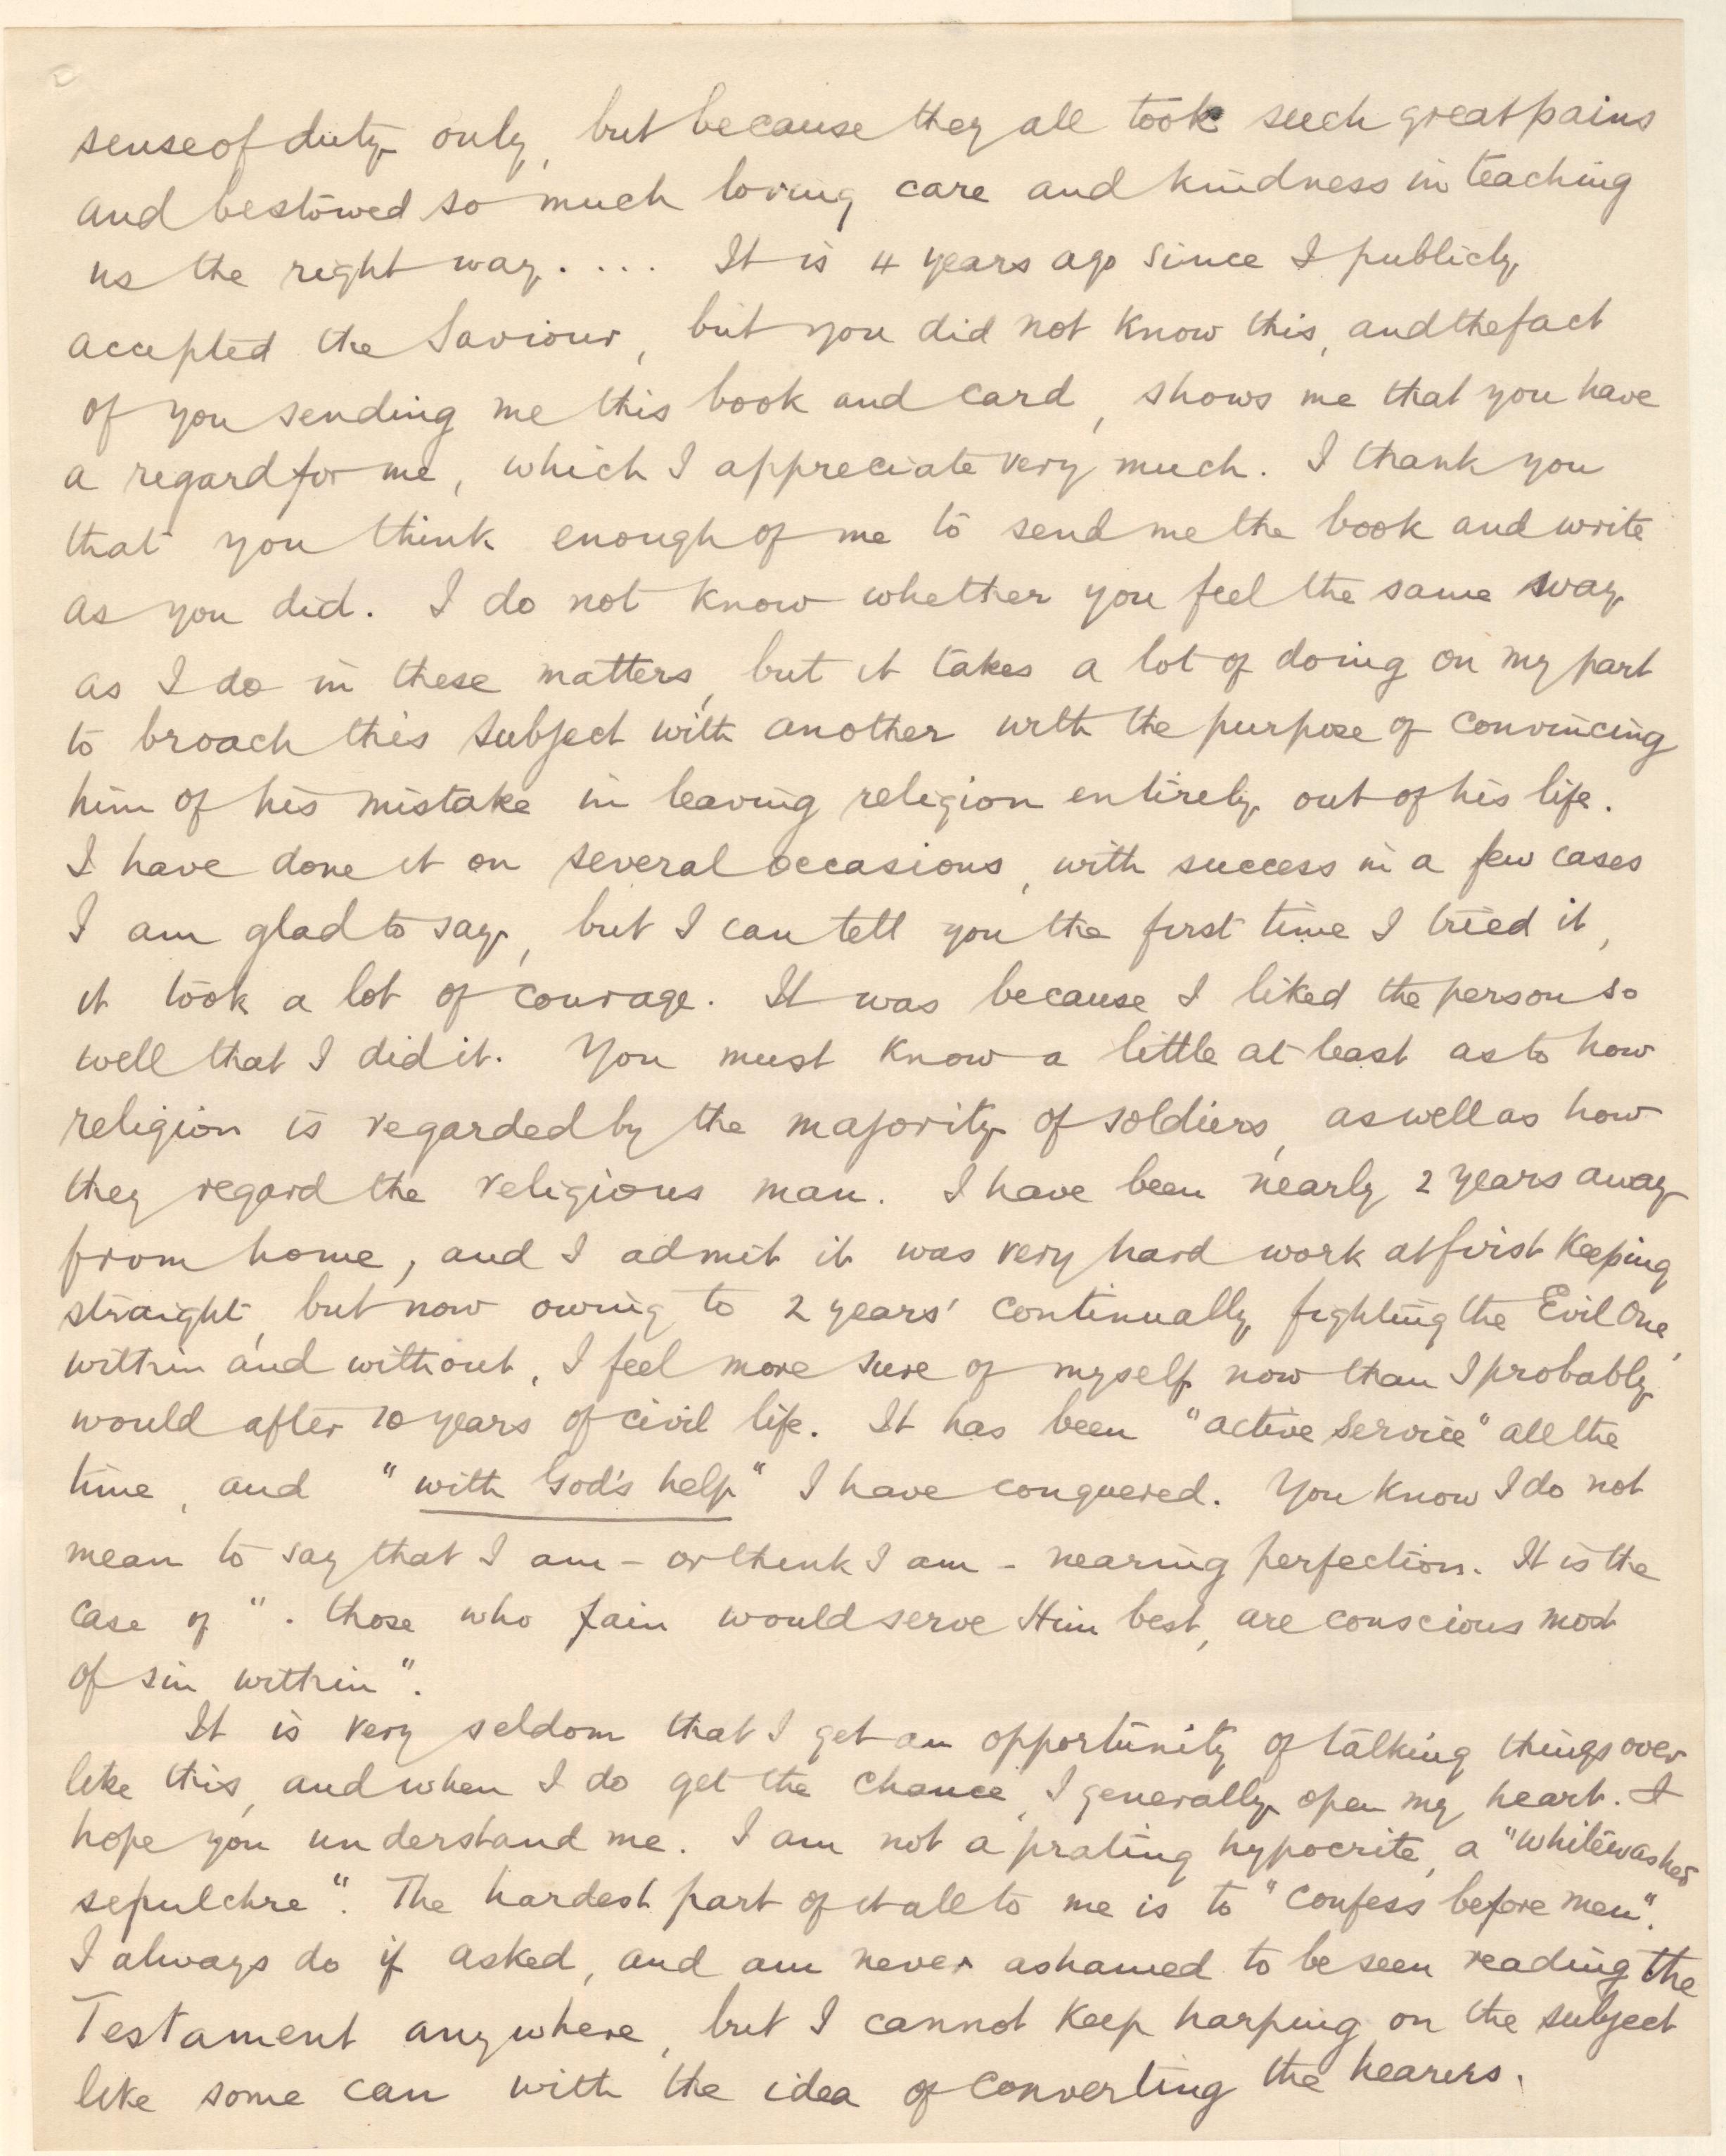 sense of duty only, but because they all took such great pains
and bestowed so much loving care and kindness in teaching
us the right way. . . . It is 4 years ago since I publicly
accepted the Saviour, but you did not know this, and the fact
of you sending me this book and card, shows me that you have
a regard for me, which I appreciate very much. I thank you
that you think enough of me to send me the book and write
as you did. I do not know whether you feel the same way
as I do in these matters, but it takes a lot of doing on my part
to broach this subject with another with the purpose of convincing
him of his mistake in leaving religion entirely out of his life.
I have done it on several occasions, with success in a few cases
I am glad to say, but I can tell you the first time I tried it,
it took a lot of courage. It was because I liked the person so
well that I did it. You must know a little at least as to how
religion is regarded by the majority of soldiers, as well as how
they regard the religious man. I have been nearly 2 years away
from home, and I admit it was very hard work at first keeping
straight, but now owing to 2 years' continually fighting the Evil One,
within and without, I feel more sure of myself now than I probably
would after 10 years of civil life. It has been "active service" all the
time, and "with God's help" I have conquered. You know I do not
mean to say that I am - or think I am - nearing perfection. It is the
case of ". those who fain would serve Him best, are conscious most
of sin within".
It is very seldom that I get an opportunity of talking things over
like this, and when I do get the chance, I generally open my heart. I
hope you understand me. I am not a prating hypocrite, a "whitewashed
sepulchre". The hardest part of it all to me is to "confess before men".
I always do if asked, and am never ashamed to be seen reading the
Testament anywhere, but I cannot keep harping on the subject
like some can with the idea of converting the hearers.